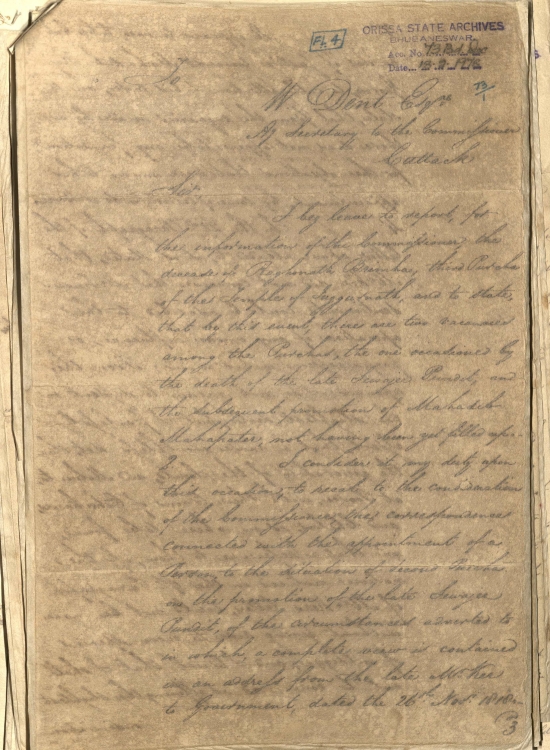 Fl. 4
ORISSA STATE ARCHIVES
BHUBANESWAR
Acc. No.
Date... 13-2-1976
To
W Dent Esqr
Ag Secretary to the Commissioner
Cuttack
Sir,
I beg leave to report, for
the information of the Commissioner, the
decease of Rughonath, third Purcha
of the Temple of Juggurnath, and to state,
that by this event, there are two vacancies
among the Purchas, the one occasioned by
the death of the late Sewajee Pundit, and
the subsequent promotion of Mahadeb
Mahapater, not having been yet filled up.
2 I consider it my duty upon
this occasion, to recall to the consideration
of the Commissioner, the correspondence
connected with the appointment of a
Person, to the situation of second Purcha
on the promotion of the late Sewajee
Pundit, of the circumstances adverted to
in which, a complete view is contained
in an address from the late Mr Ker
to Government, dated the 26th Novr 1818.
3